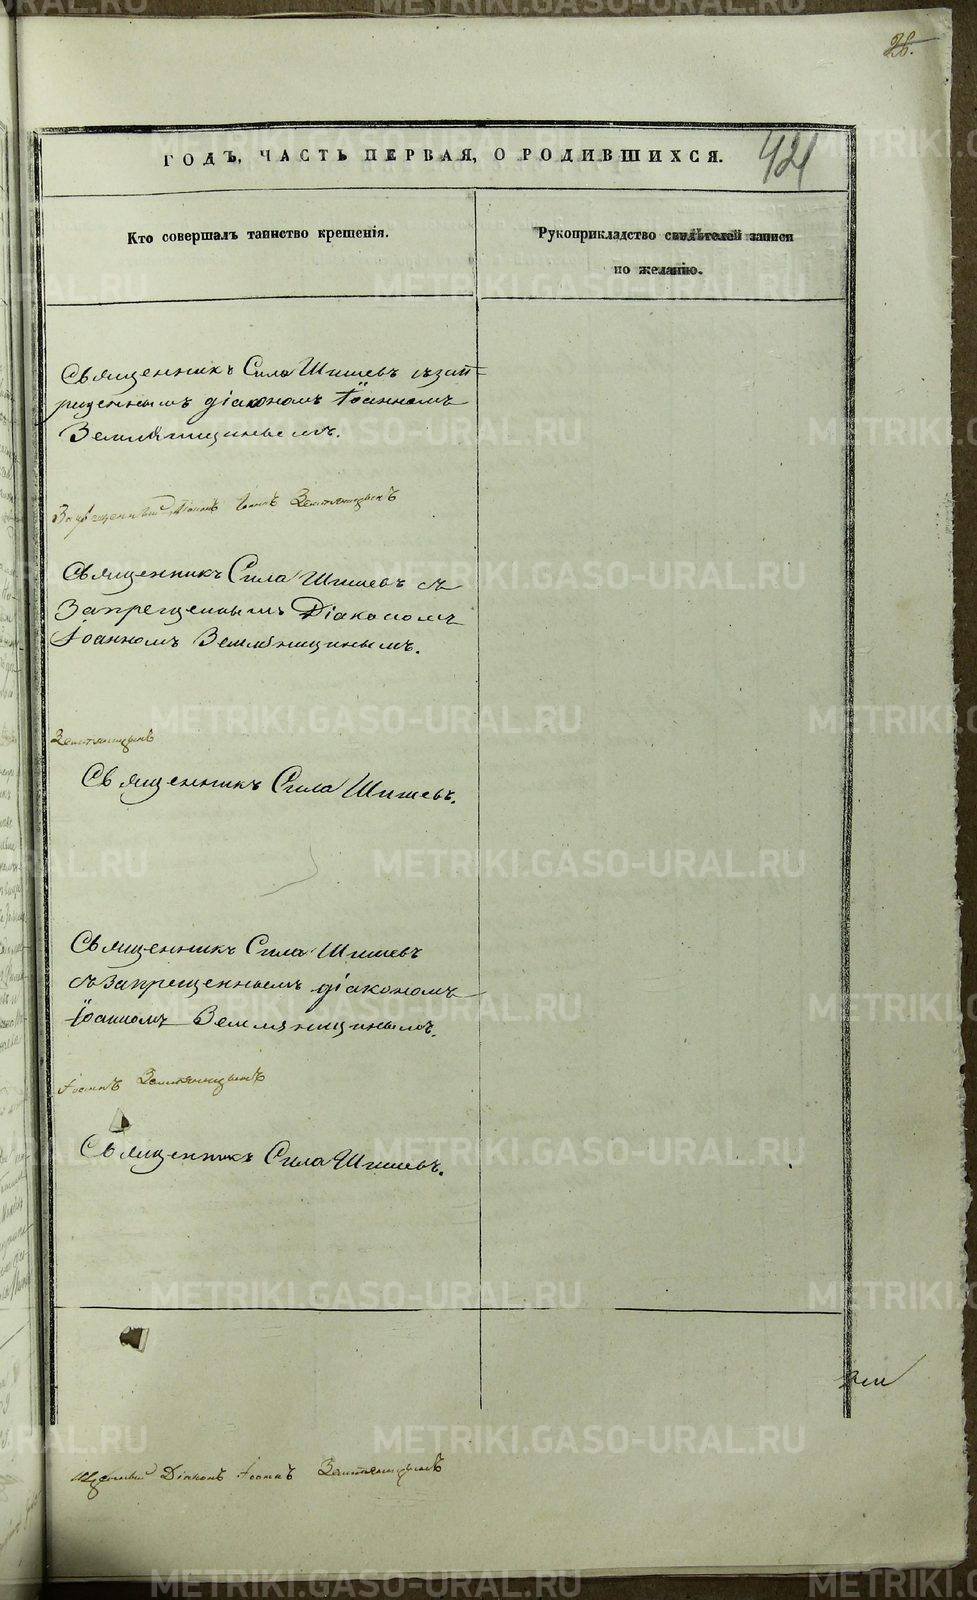 28.
ГОДЪ, ЧАСТЬ ПЕРВАЯ, О РОДИВШИХСЯ.
421
Кто совершалъ таинство крещенія.
Рукоприкладство свидѣтелей записи
по желанію.
Священникъ Сила Шишевъ съ зап-
рещеннымъ діакономъ Іоанномъ
Землянициным
Діаконъ Іоаннъ Земляницынъ
Священникъ Сила Шишевъ съ
Запрещеннымъ Діакономъ
Іоанномъ Земляницинымъ.
Земляницынъ
Священникъ Сила Шишевъ.
Священникъ Сила Шишевъ
съ запрещеннымъ діакономъ
Іоанномъ Земляницинымъ.
Іоаннъ Земляницынъ
Священникъ Сила Шишевъ.
Діаконъ Іоаннъ Земляницынъ
METRIKI.GASO-URAL.RU